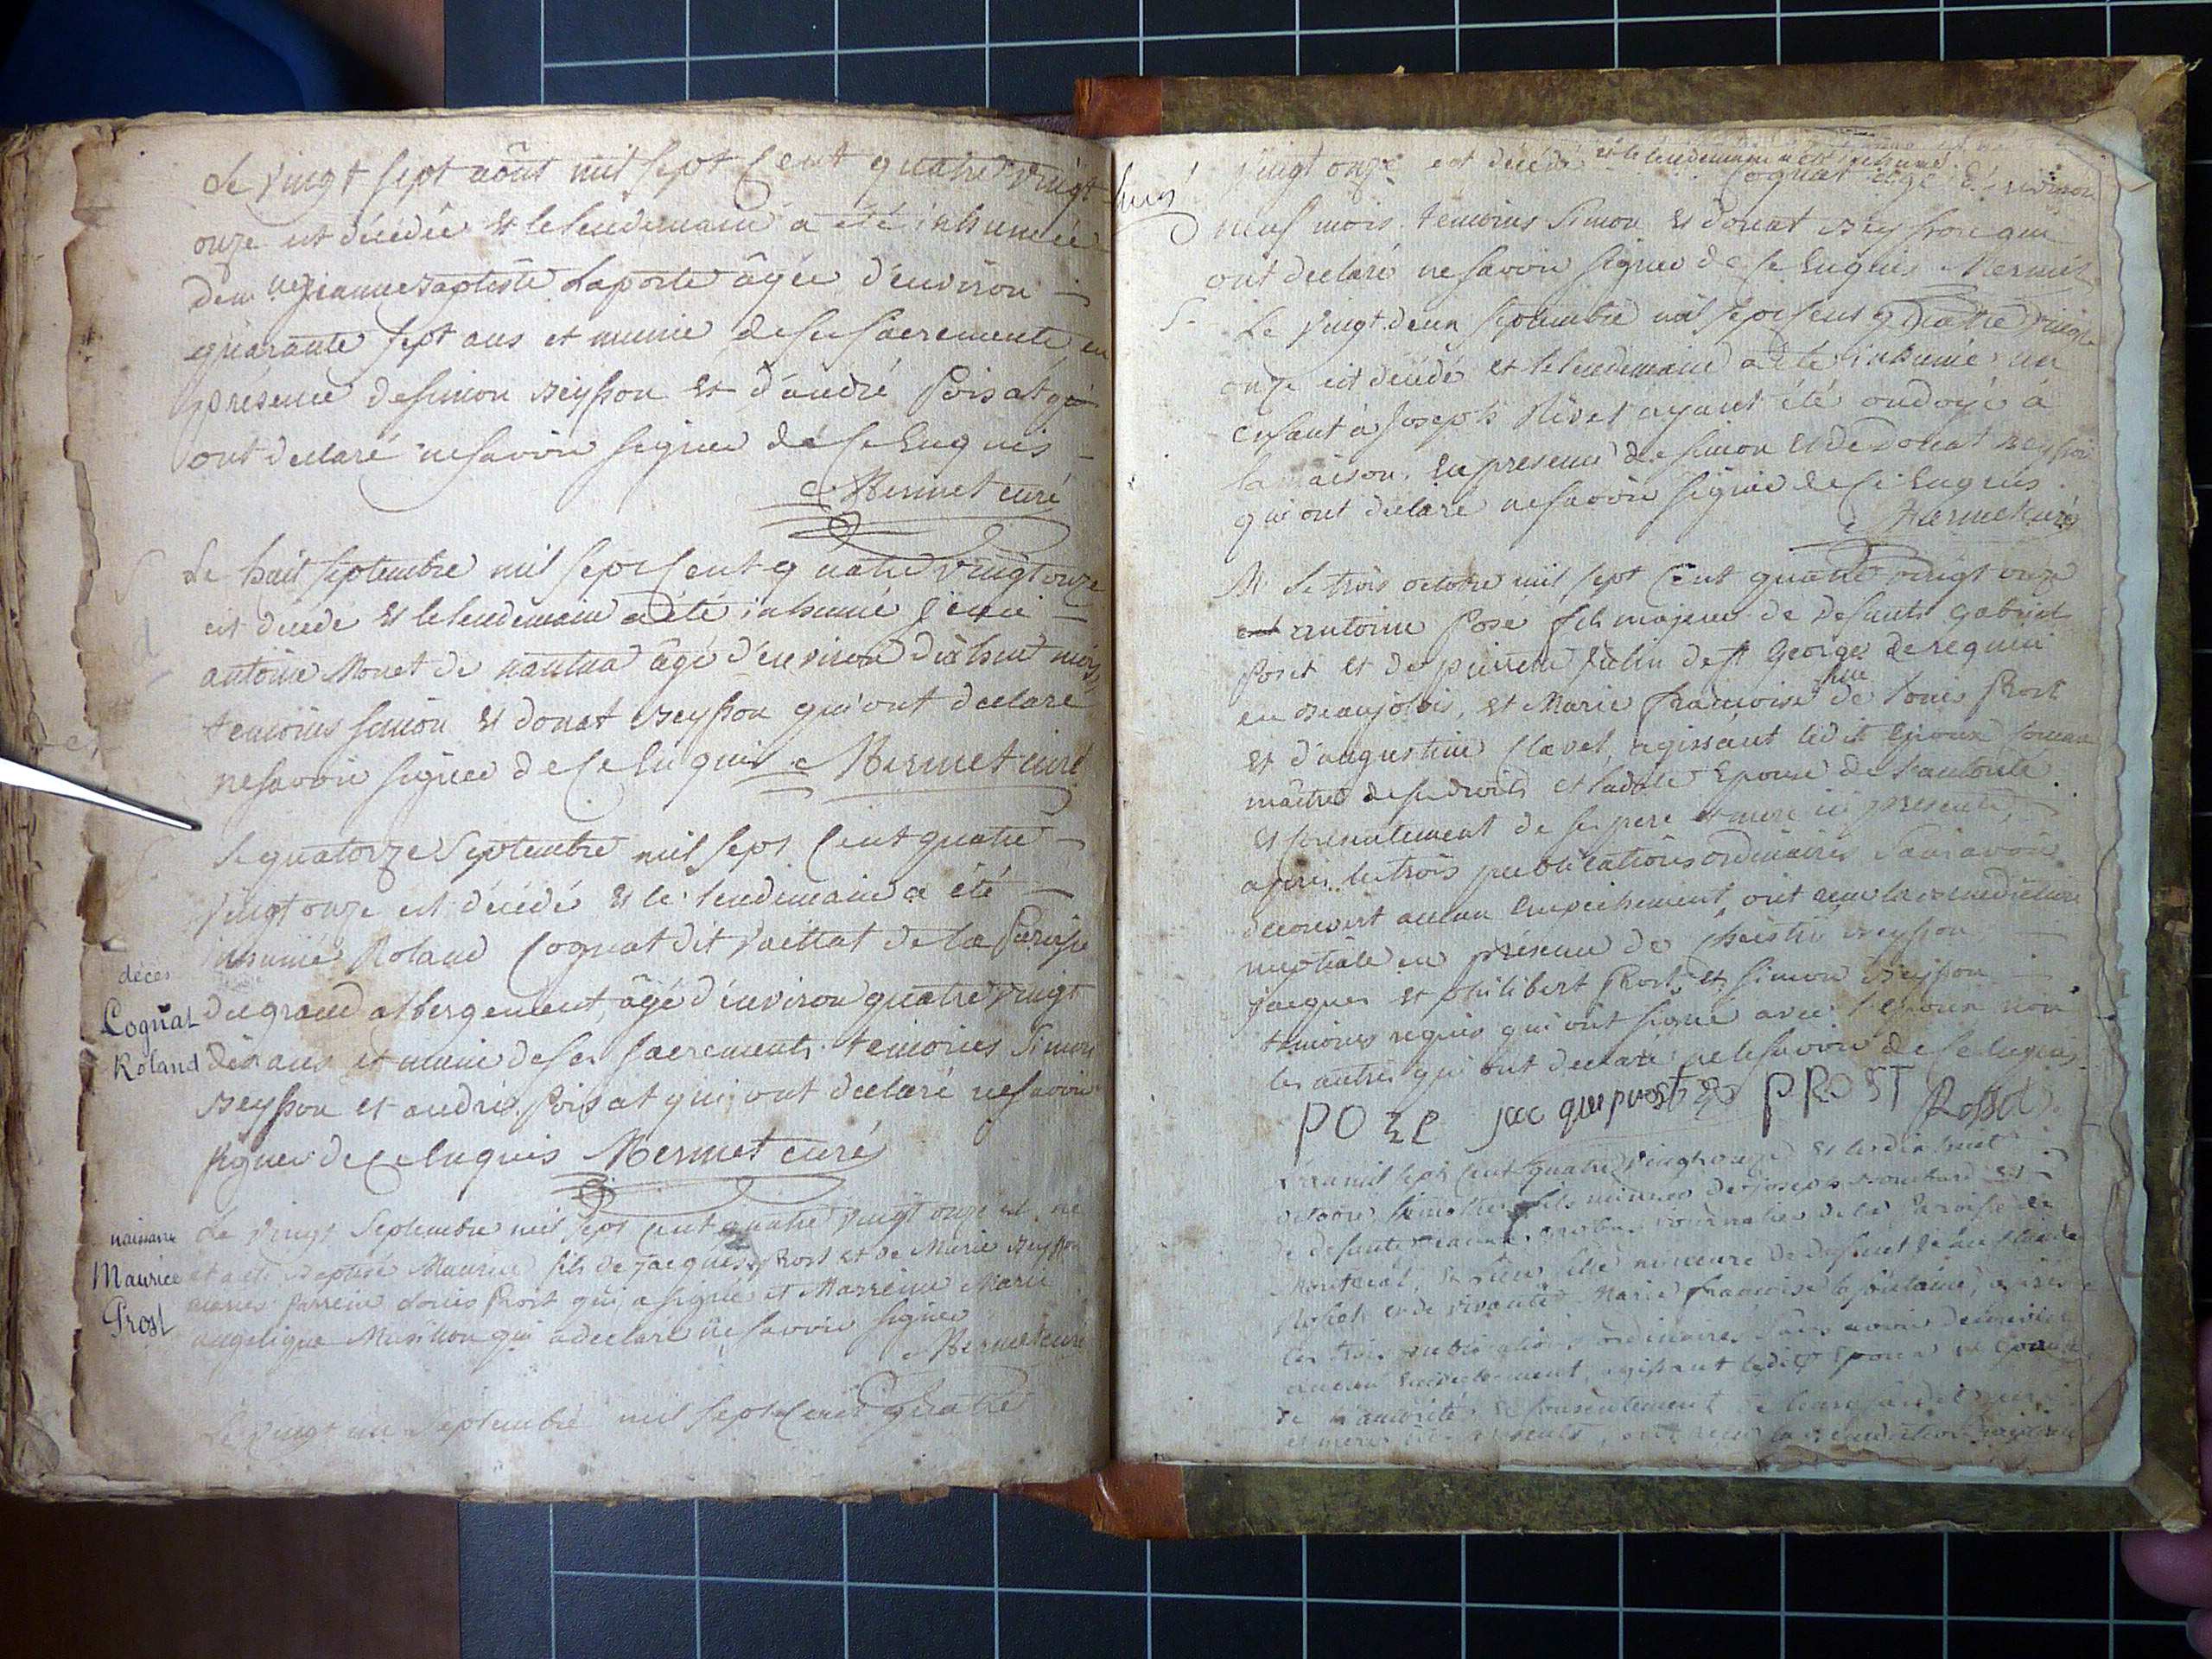 Le vingt sept aôut mil sept cent quatre vingt
onze est décédée et le lendemain a été inhumée
dem jeanne Baptiste Laporte âgée d'environ
quarante sept ans et munie de ses sacrements, en
présence de simon Beysson et d'andré Poisat qui
ont declaré ne savoir signer de ce Enquis
Mermet curé
Le huit septembre mil sept cent quatre vingt onze
est décédé et le lendemain a été inhumé
antoine Monet de nantua âgé d'environ dix huit mois
temoins simon et donat Beysson qui ont declaré
ne savoir signer de ce Enquis Mermet curé
Le quatorze Septembre mil sept cent quatre
vingt onze est décédé et le lendemain a été
inhumé Roland Cognat dit vaittat de la Paroisse
décès
Cognat
Roland
du grand abbergement, âgé d'environ quatre vingt
dix ans et muni de ses sacrements. temoins Simon
Beysson et andré Poisat qui ont declaré ne savoir
signer de ce Enquis Mermet curé
naissance
Maurice
Prost
Le vingt Septembre mil sept cent quatre vingt onze est né
et a été baptisé Maurice fils de Jacques Prost et de Marie Beysson
mariés Parrein Louis Prost qui a signé et Marreine Marie
angelique Marillon qui a declaré ne savoir signer
Mermet curé
Le vingt un septembre mil sept cent quatre
vingt onze est décédé et le lendemain a été inhumé
Cognat âgé d'environ
neuf mois. temoins Simon et donat Beysson qui
ont declaré ne savoir signer de ce Enquis Mermet
S. Le vingt deux septembre mil sept cent quatre vingt
onze est décédé et le lendemain a été inhumé un
enfant à Joseph Rivet ayant été ondoyé à
la maison. En presence de simon et de donat Beysson
qui ont declaré ne savoir signer de ce Enquis.
Mermet curé
M Le trois octobre mil sept cent quatre vingt onze
antoine Pose fils majeur de defunts gabriel
Poset et de pierrette de st George de regnein
en Beaujolois, et Marie françoise fille de Louis Prost
et d'augustine Clavel, agissant ledit Epoux comme
maitre de ses droits et ladite Epouse de l'autorité
et consentement de ses pere et mere ici presents,
après les trois publications ordinaires sans avoir
decouvert aucun Empêchement ont recu la benediction
nuptiale en présence de Beysson
jacques et philibert Prost et simon Beysson
temoins requis qui ont signé avec l'epoux non
les autres qui ont declaré ne le savoir de ce Enquis.
POZE jacque prost PROST
L'an mil sept cent quatre vingt onze et le dix huit
octobre fils mineur de joseph Bouchard et
de defunte de la Paroisse de
Montreal, fille mineure de defunt
et de vivante Marie françoise la fontaine, après
les trois publications ordinaires sans avoir decouvert
aucun Empechement, agissant ledit Epoux et Epouse
de l'autorité et consentement de leurs pere
et mere ont recu la benediction nuptiale